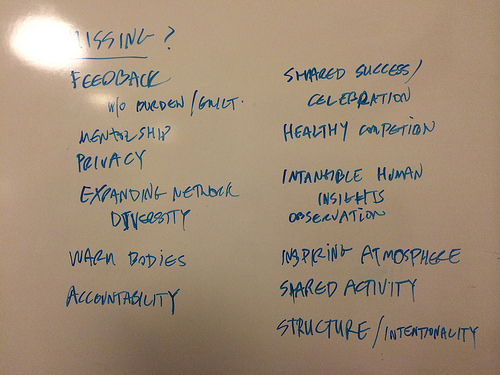 MISSING?
FEEDBACK
W/O BURDEN/GUILT.
MENTORSHIP
PRIVACY
EXPANDING NETWORK
DIVERSITY
WARM BODIES
ACCOUNTABILITY
SHARED SUCCESS/
CELEBRATION
HEALTHY COMPETION
INTANGIBLE HUMAN
INSIGHTS
OBSERVATION
INSPIRING ATMOSPHERE
SHARED ACTIVITY
STRUCTURE/INTENTIONALITY